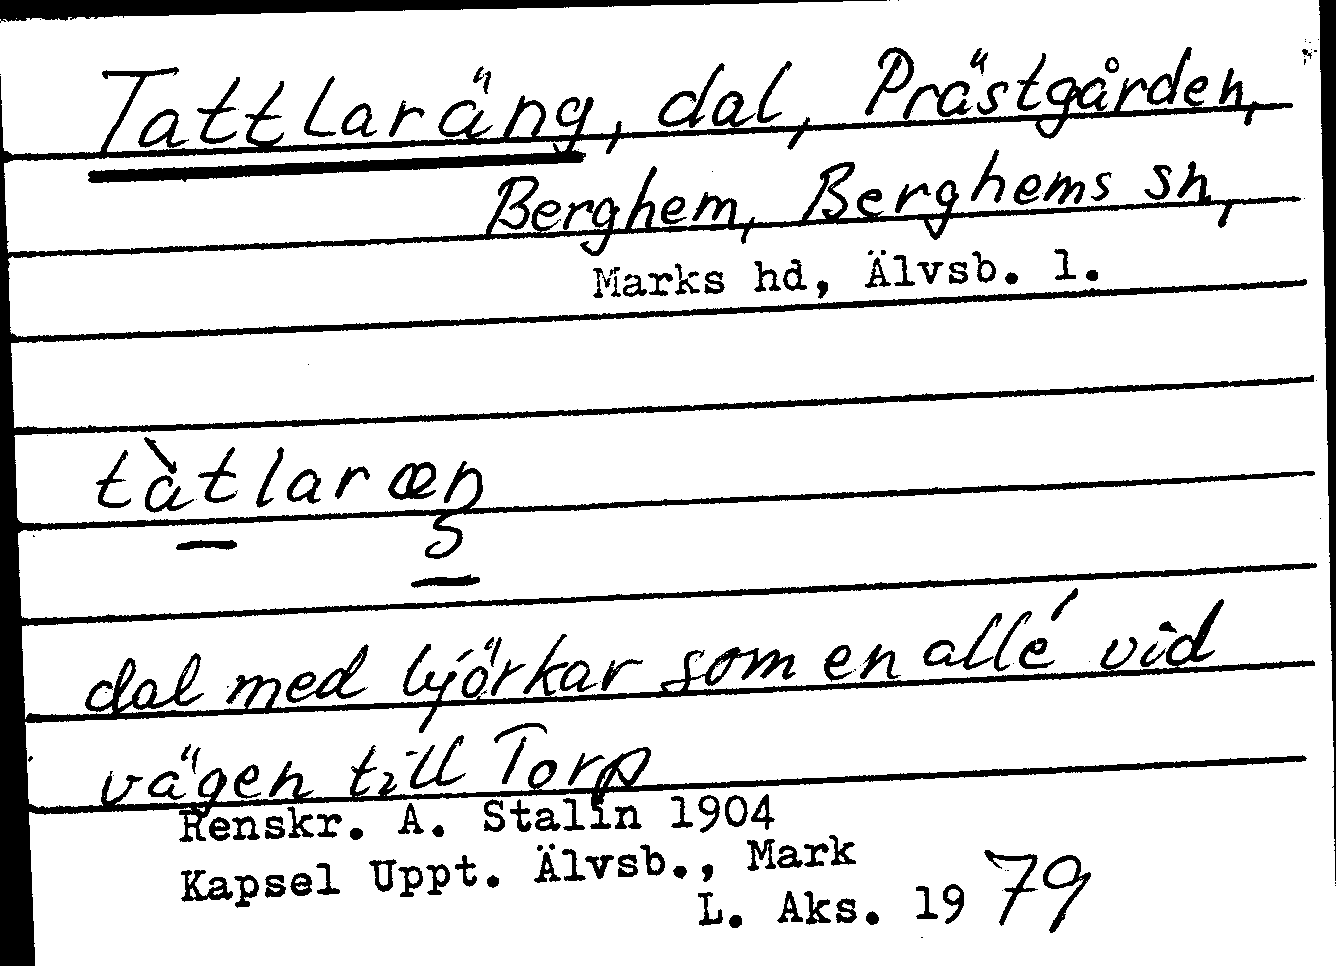 Tattlaräng, dal, Prästgården,
Berghem, Berghems sn,
Marks hd, Älvsb. l.
tàtlaræŋ
dal med björkar som en allé vid
vägen till Torp
Renskr. A. Stalin 1904
Kapsel Uppt. Älvsb., Mark
L. Aks. 1979